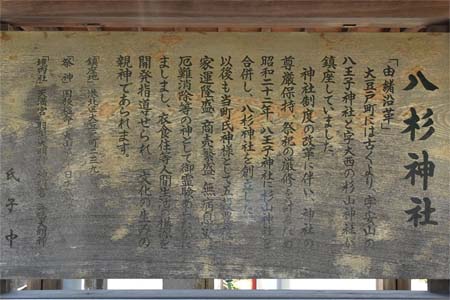 八杉神社
「由緒沿革」
大豆戸町には古くより、字安山の
八王子神社と字大西の杉山神社が
鎮座していました。
神社制度の改革に伴い、神社の
尊厳保持、祭祀の厳修を計るため
昭和三十三年、八王子神社に杉山神社を
合併し、八杉神社を創立
以後も当町氏神様として五穀豊穣
家運隆盛、商売繁盛、無病息災
厄難消除等の神として御霊験あらたかに
ましまし、衣食住等人間生活の根を
開発指導せられ、文化の生みの
親神であられます。
鎮座地 港北区大豆戸町
祭神
境内社
氏子中